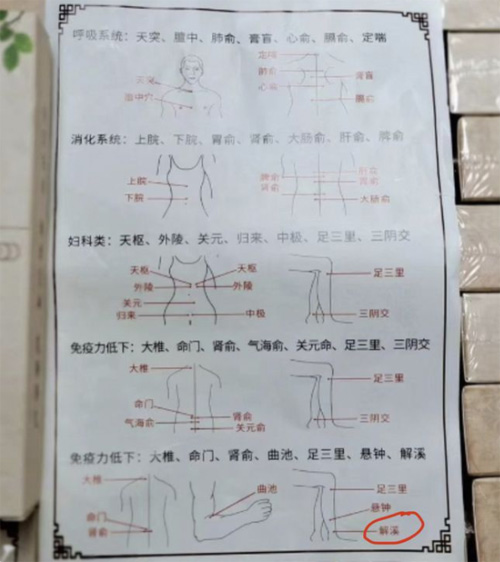 呼吸系统：天突、膻中、肺俞、膏肓、心俞、膈俞、定喘
定喘
肺俞
膏肓
天突
心俞
膻中穴
膈俞
消化系统：上脘、下脘、胃俞、肾俞、大肠俞、肝俞、脾俞
上脘
脾俞
肝俞
胃俞
下脘
肾俞
大肠俞
妇科类：天枢、外陵、关元、归来、中极、足三里、三阴交
天枢
天枢
足三里
外陵
外陵
关元
归来
中极
三阴交
免疫力低下：大椎、命门、肾俞、气海俞、关元命、足三里、三阴交
大椎
足三里
命门
肾俞
气海俞
关元俞
三阴交
免疫力低下：大椎、命门、肾俞、曲池、足三里、悬钟、解溪
大椎
曲池
足三里
悬钟
命门
肾俞
解溪